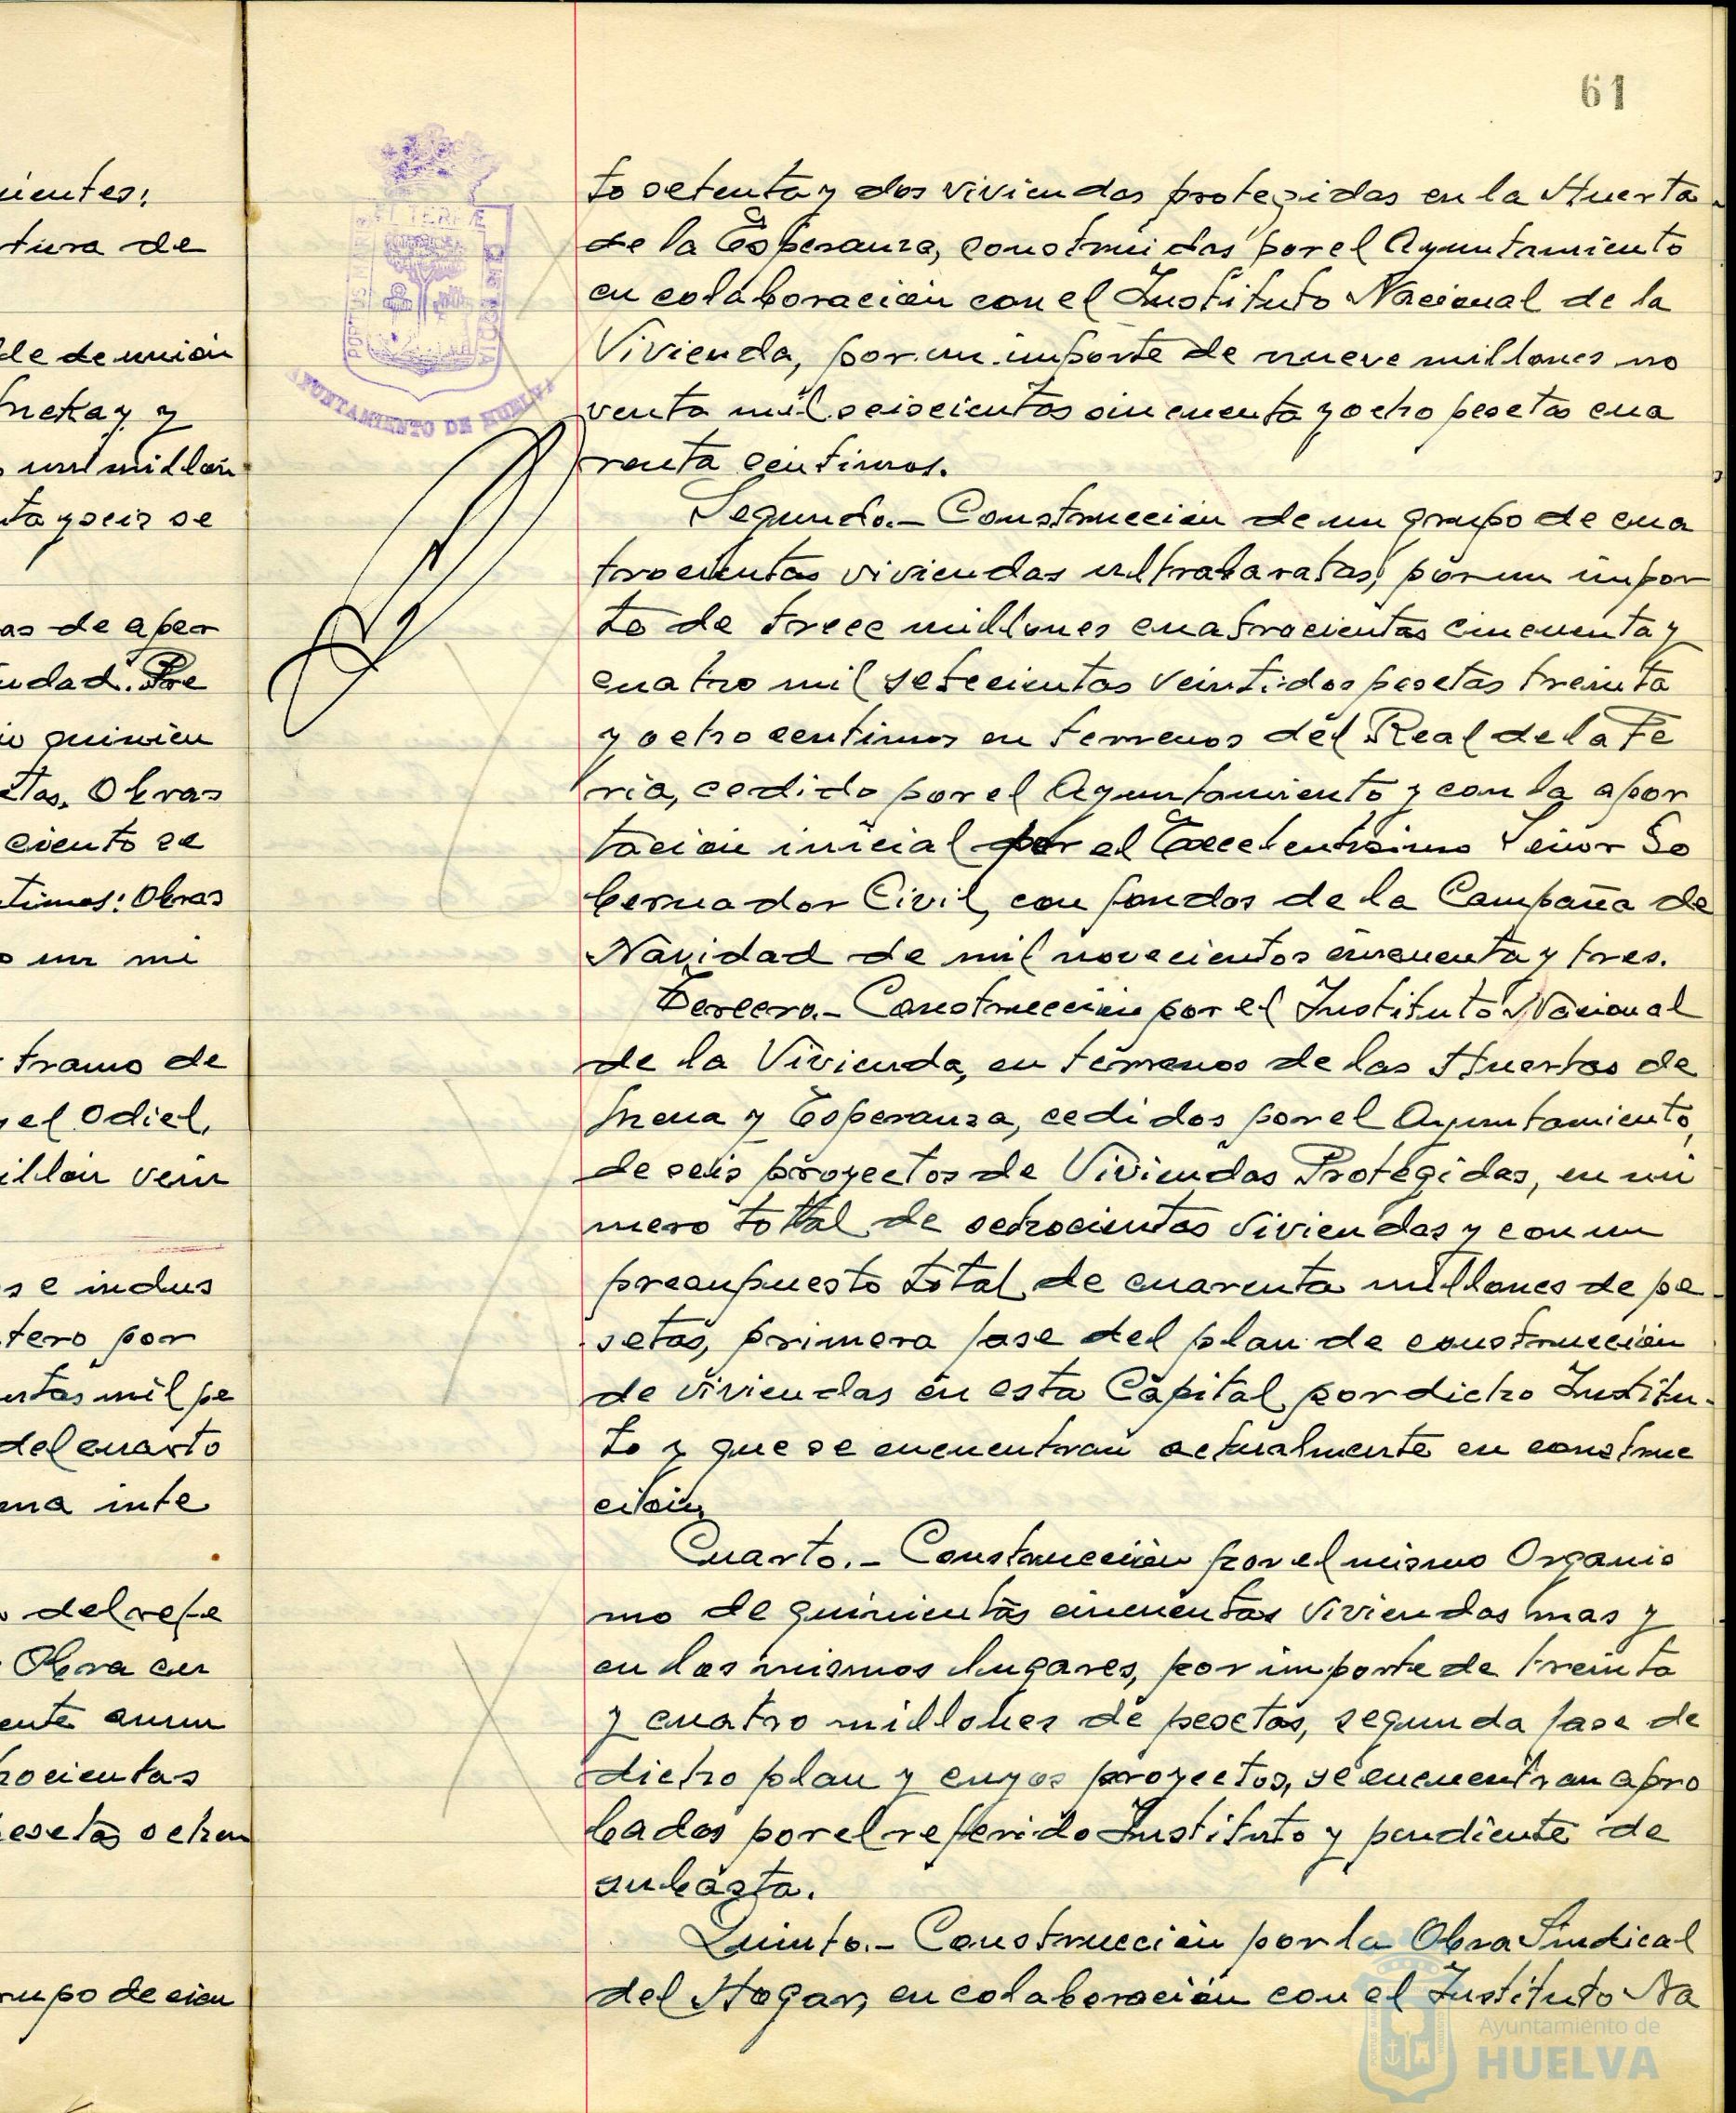 uientes:
tura de
de de unión
y
un millón
ta y seis se
as de aper
udad. Pre
quinien
tas. Obras
ciento se
timos: Obras
un mi
tramo de
y el Odiel,
illón vein
s e indus
tero por
ntas mil pe
del cuarto
ma inte
del refe
Obra en
ente aum
rocientas
esetas ochen
rupo de cien
61
PORTUS MARIS ET TERRÆ CUSTODIA
AYUNTAMIENTO DE HUELVA
to setenta y dos viviendas protegidas en la Huerta
de la Esperanza, construidas por el Ayuntamiento
en colaboración con el Instituto Nacional de la
Vivienda, por un importe de nueve millones no
venta mil seiscientas cincuenta y ocho pesetas cua
renta centimos.
Segundo.- Construcción de un grupo de cua
trocientas viviendas ultrabaratas, por un impor
te de trece millones cuatrocientas cincuenta y
cuatro mil setecientas veintidos pesetas treinta
y ocho centimos en terrenos del Real de la Fe
ria, cedido por el Ayuntamiento y con la apor
tación inicial por el Excelentisimo Señor Go
bernador Civil, con fondos de la Campaña de
Navidad de mil novecientos cincuenta y tres.
Tercero.- Construcción por el Instituto Nacional
de la Vivienda, en terrenos de las Huertas de
Mena y Esperanza, cedidos por el Ayuntamiento,
de seis proyectos de Viviendas Protegidas, en nú
mero total de ochocientas viviendas y con un
presupuesto total de cuarenta millones de pe
setas, primera fase del plan de construcción
de viviendas en esta Capital por dicho Institu-
to y que se encuentran actualmente en construc
ción.
Cuarto.- Construcción por el mismo Organis
mo de quinientas cincuentas viviendas mas y
en los mismos lugares, por importe de treinta
y cuatro millones de pesetas, segunda fase de
dicho plan y cuyos proyectos, se encuentran apro
bados por el referido Instituto y pendiente de
subasta.
Quinto.- Construcción por la Obra Sindical
del Hogar, en colaboración con el Instituto Na
Ayuntamiento de
HUELVA